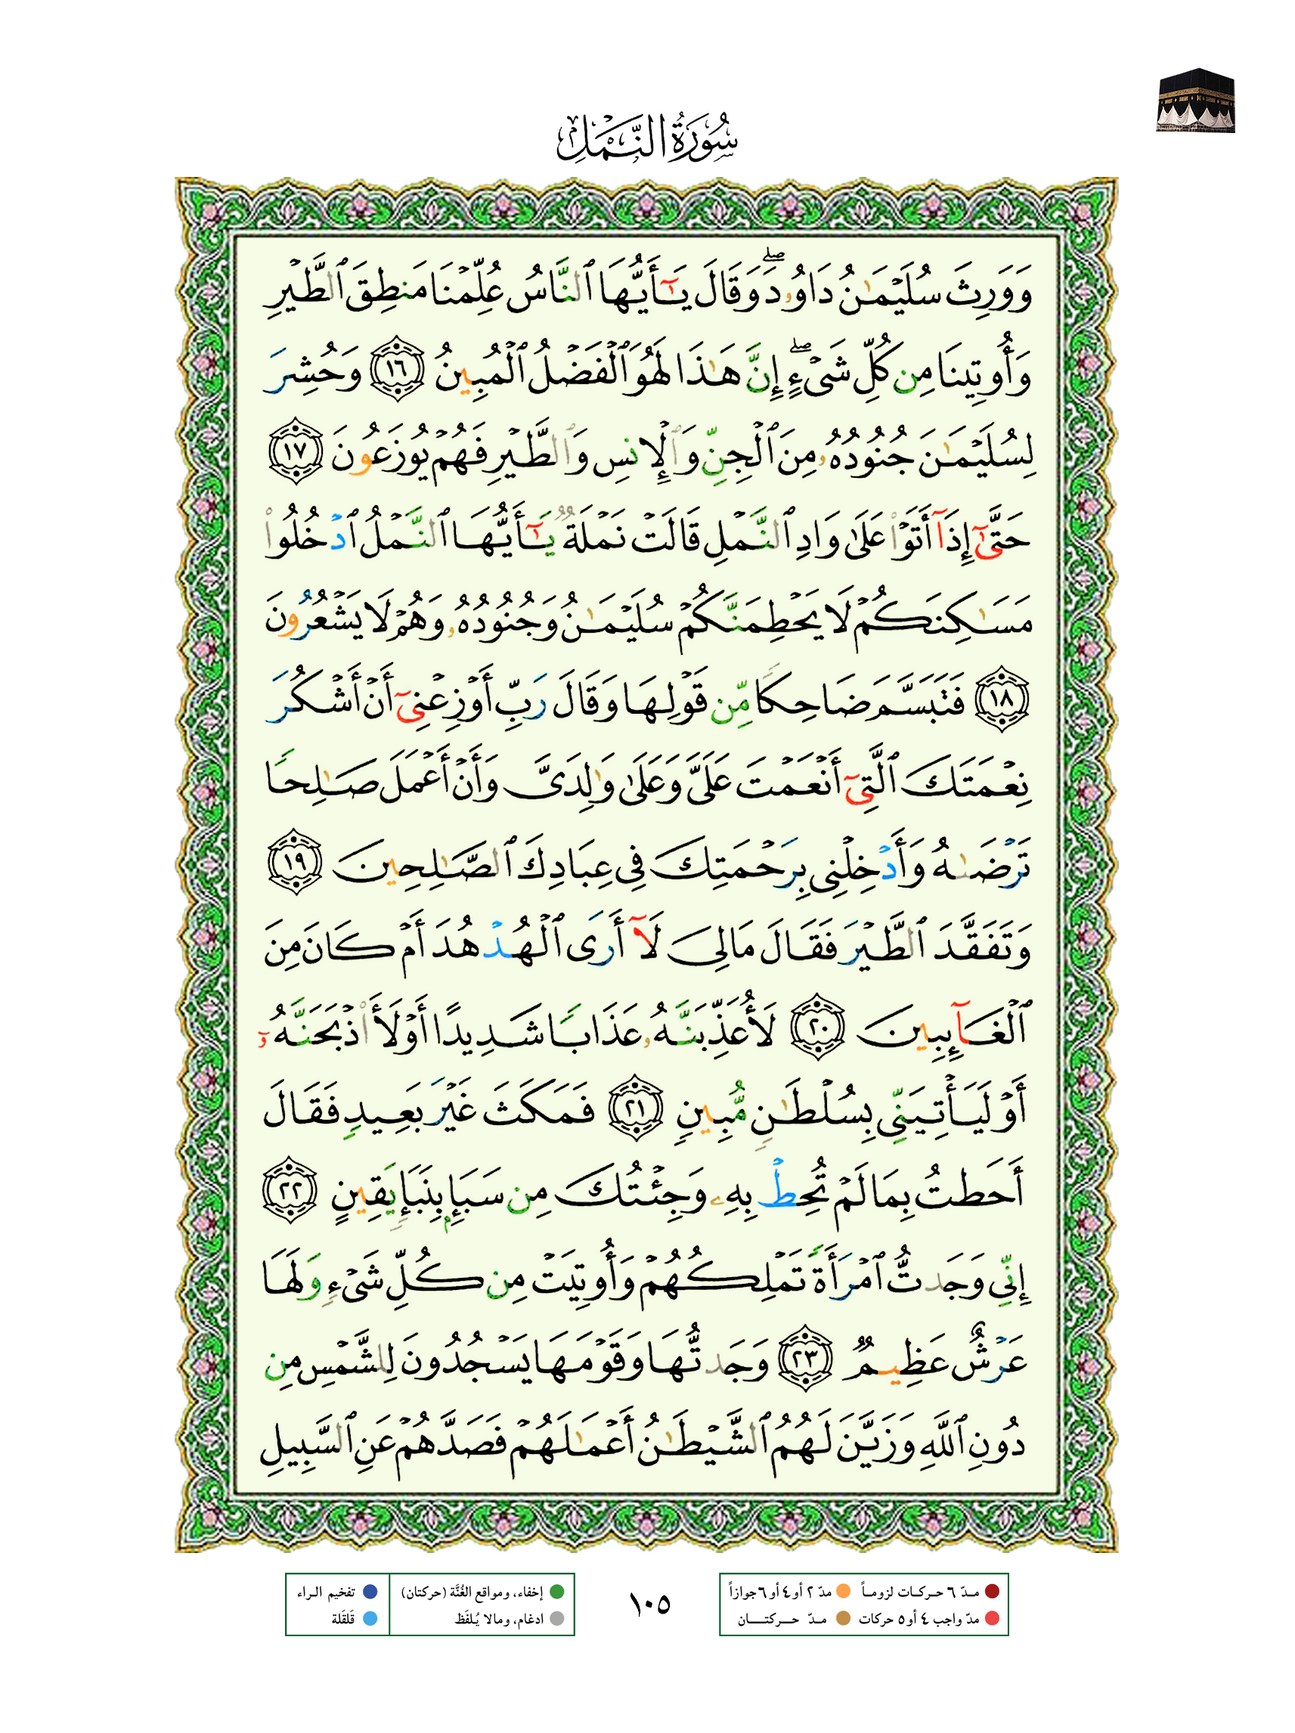 سُورَةُ النَّمْلِ
وَوَرِثَ سُلَيْمَـٰنُ دَاوُۥدَ ۖ وَقَالَ يَـٰٓأَيُّهَا ٱلنَّاسُ عُلِّمْنَا مَنطِقَ ٱلطَّيْرِ
وَأُوتِينَا مِن كُلِّ شَىْءٍ ۖ إِنَّ هَـٰذَا لَهُوَ ٱلْفَضْلُ ٱلْمُبِينُ ١٦ وَحُشِرَ
لِسُلَيْمَـٰنَ جُنُودُهُۥ مِنَ ٱلْجِنِّ وَٱلْإِنسِ وَٱلطَّيْرِ فَهُمْ يُوزَعُونَ ١٧
حَتَّىٰٓ إِذَآ أَتَوْا۟ عَلَىٰ وَادِ ٱلنَّمْلِ قَالَتْ نَمْلَةٌ يَـٰٓأَيُّهَا ٱلنَّمْلُ ٱدْخُلُوا۟
مَسَـٰكِنَكُمْ لَا يَحْطِمَنَّكُمْ سُلَيْمَـٰنُ وَجُنُودُهُۥ وَهُمْ لَا يَشْعُرُونَ
١٨ فَتَبَسَّمَ ضَاحِكًا مِّن قَوْلِهَا وَقَالَ رَبِّ أَوْزِعْنِىٓ أَنْ أَشْكُرَ
نِعْمَتَكَ ٱلَّتِىٓ أَنْعَمْتَ عَلَىَّ وَعَلَىٰ وَٰلِدَىَّ وَأَنْ أَعْمَلَ صَـٰلِحًا
تَرْضَىٰهُ وَأَدْخِلْنِى بِرَحْمَتِكَ فِى عِبَادِكَ ٱلصَّـٰلِحِينَ ١٩
وَتَفَقَّدَ ٱلطَّيْرَ فَقَالَ مَالِىَ لَآ أَرَى ٱلْهُدْهُدَ أَمْ كَانَ مِنَ
ٱلْغَآئِبِينَ ٢٠ لَأُعَذِّبَنَّهُۥ عَذَابًا شَدِيدًا أَوْ لَأَا۟ذْبَحَنَّهُۥٓ
أَوْ لَيَأْتِيَنِّى بِسُلْطَـٰنٍ مُّبِينٍ ٢١ فَمَكَثَ غَيْرَ بَعِيدٍ فَقَالَ
أَحَطتُ بِمَا لَمْ تُحِطْ بِهِۦ وَجِئْتُكَ مِن سَبَإٍۭ بِنَبَإٍ يَقِينٍ ٢٢
إِنِّى وَجَدتُّ ٱمْرَأَةً تَمْلِكُهُمْ وَأُوتِيَتْ مِن كُلِّ شَىْءٍ وَلَهَا
عَرْشٌ عَظِيمٌ ٢٣ وَجَدتُّهَا وَقَوْمَهَا يَسْجُدُونَ لِلشَّمْسِ مِن
دُونِ ٱللَّهِ وَزَيَّنَ لَهُمُ ٱلشَّيْطَـٰنُ أَعْمَـٰلَهُمْ فَصَدَّهُمْ عَنِ ٱلسَّبِيلِ
مدّ ٦ حركات لزوماً مدّ ٢ أو ٤ أو ٦ جوازاً
مدّ واجب ٤ أو ٥ حركات مدّ حركتان
١٠٥
إخفاء، ومواقع الغُنَّة (حركتان) تفخيم الراء
ادغام، ومالا يُلفَظ قَلقَلة